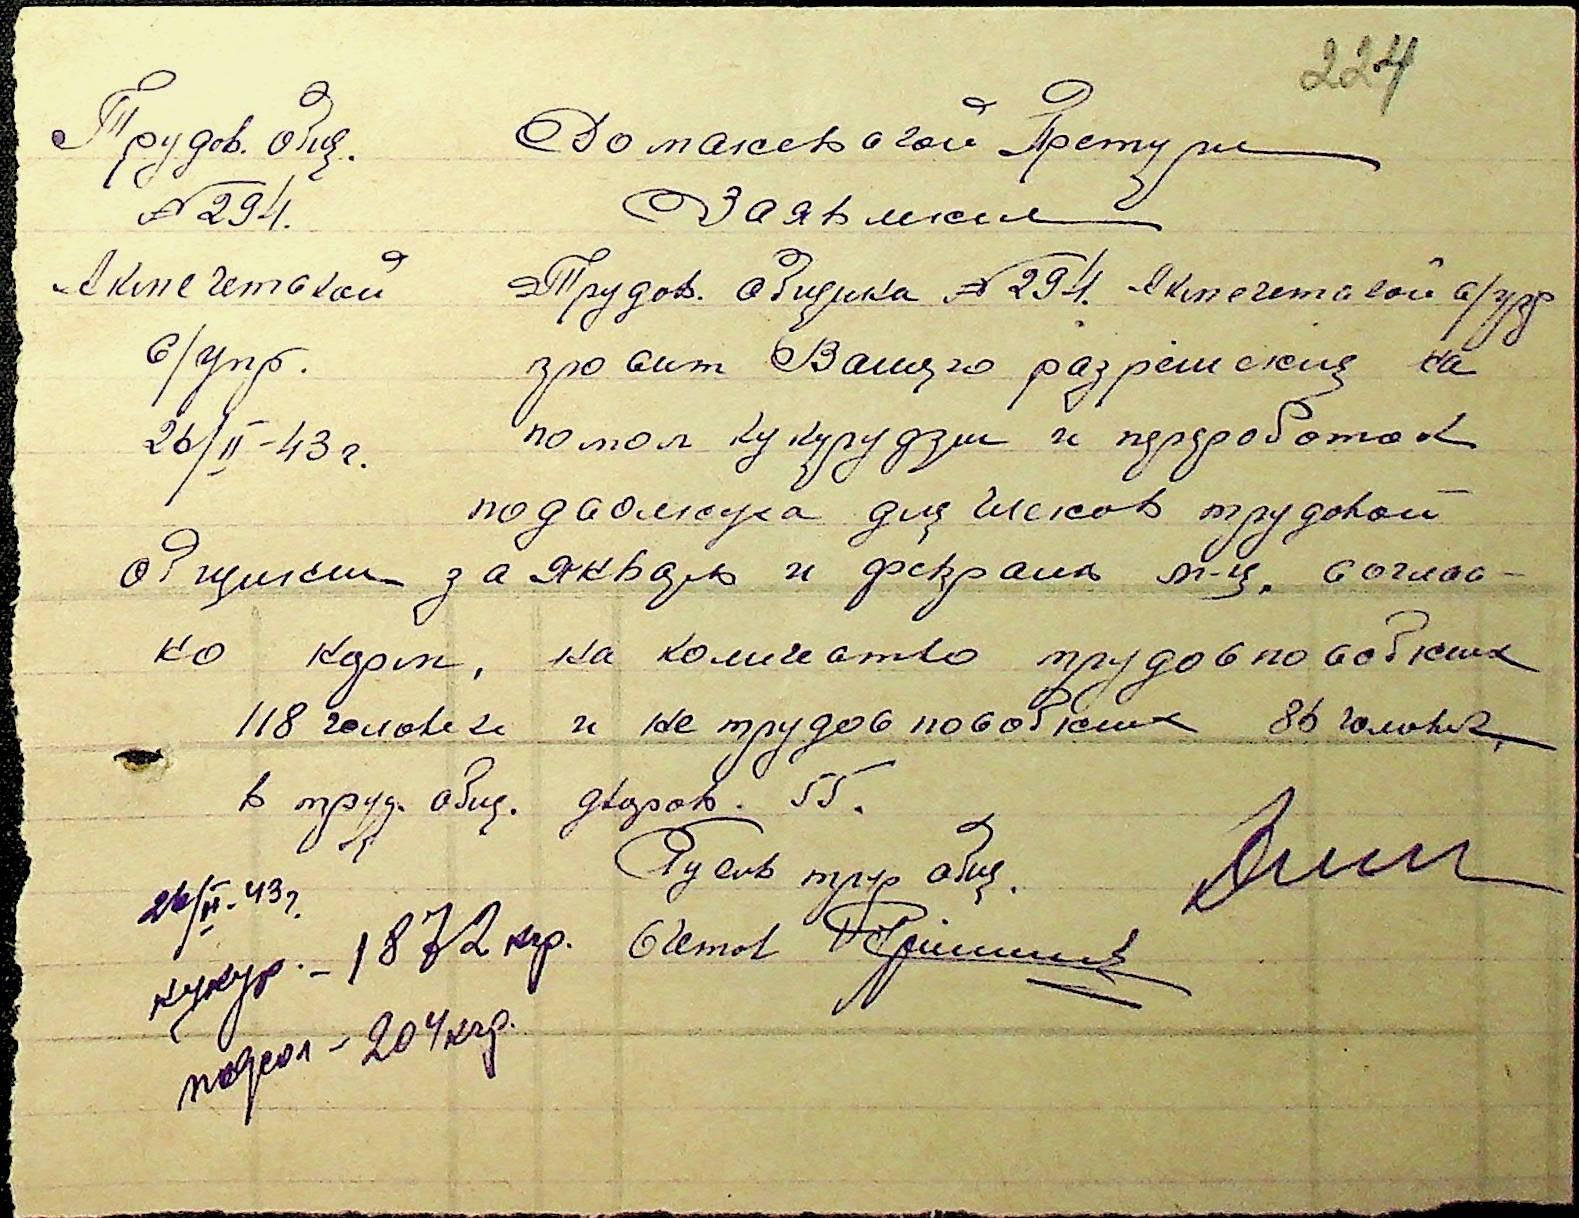 224
Трудов. общ.
№ 294.
Акмечетской
с/упр.
26/II-43 г.
Доманевской Претуры
Заявление
Трудов. община № 294. Акмечетской с/упр
просит Вашего разрешения на
помол кукурудзы и переработок
подсолнуха для членов трудовой
общины за январь и февраль м-ц. соглас-
но норм, на количество трудоспособных
118 человек и не трудоспособных 86 человек,
в труд. общ. дворов. 55.
труд общ.
Счетов
26/II-43 г.
кукур. - 1872 кгр.
подсол - 204 кгр.